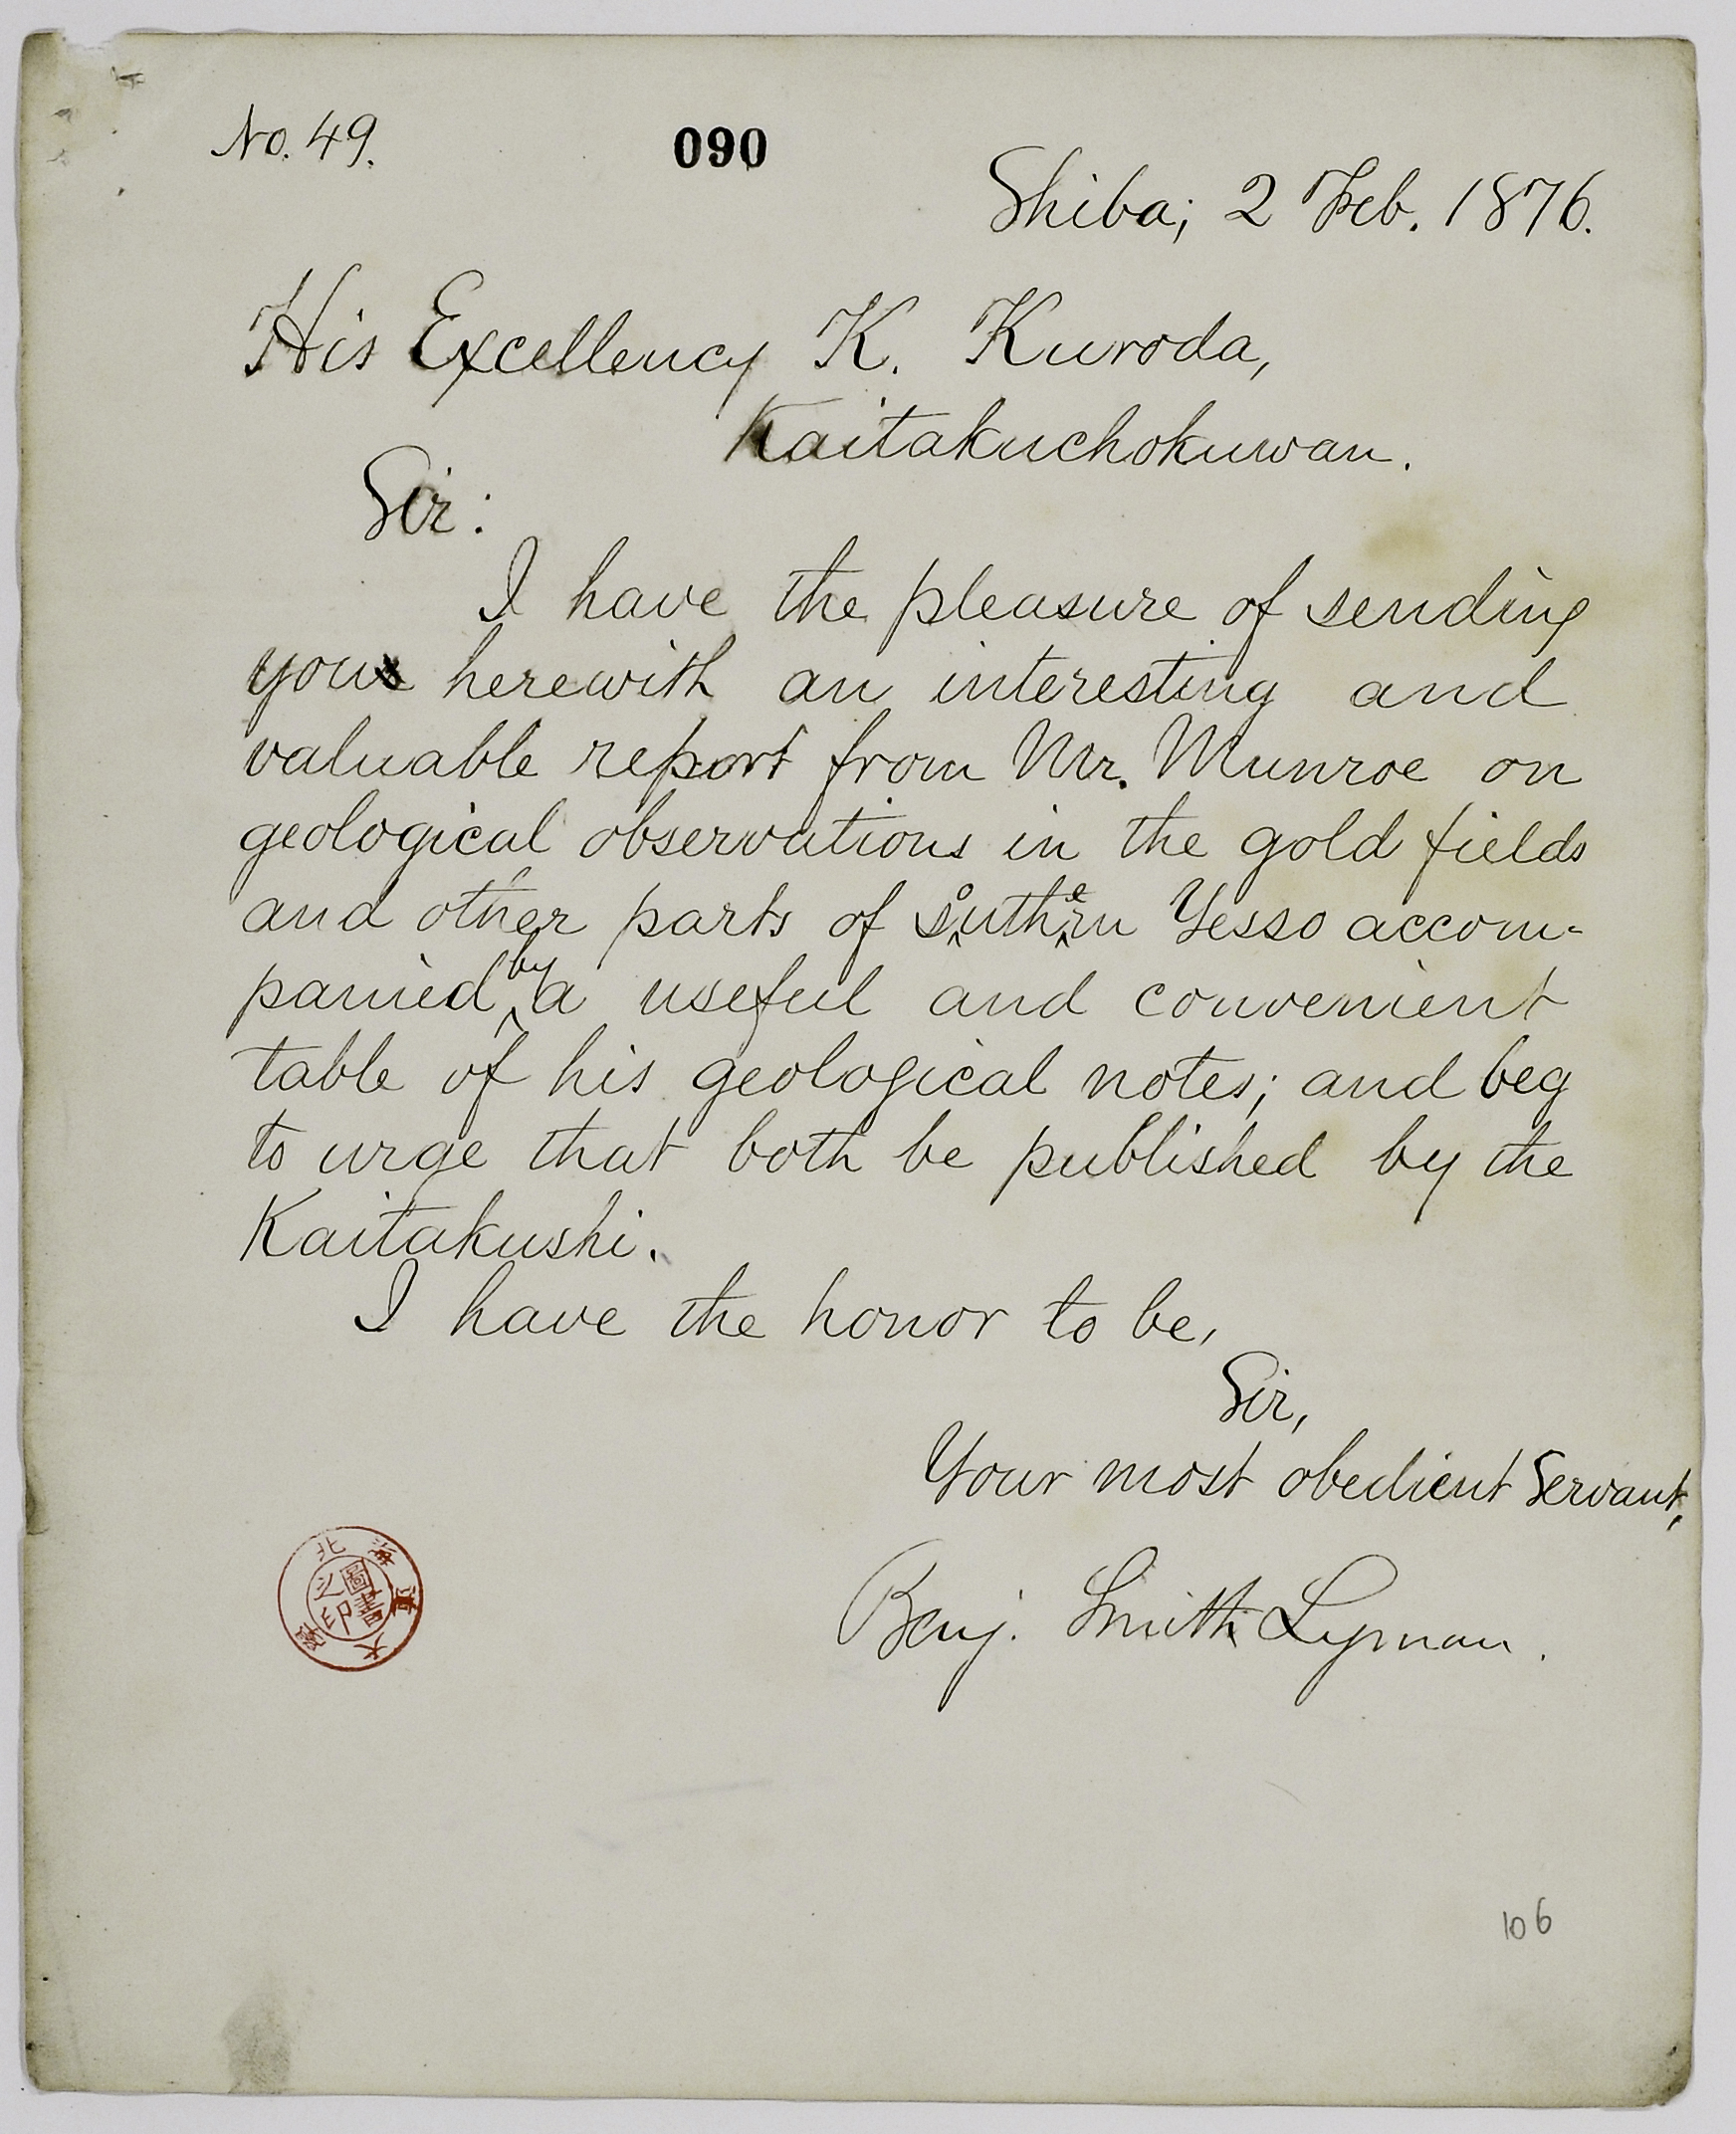 No. 49.
090
Shiba; 2 Feb. 1876.
His Excellency K. Kuroda,
Kaitakuchokuwan.
Sir:
I have the pleasure of sending
you herewith an interesting and
valuable report from Mr. Munroe on
geological observations in the gold fields
and other parts of southern Yesso accom-
panied by a useful and convenient
table of his geological notes; and beg
to urge that both be published by the
Kaitakushi.
I have the honor to be,
Sir,
Your most obedient Servant,
Benj. Smith Lyman.
北海道大學
圖書之印
106